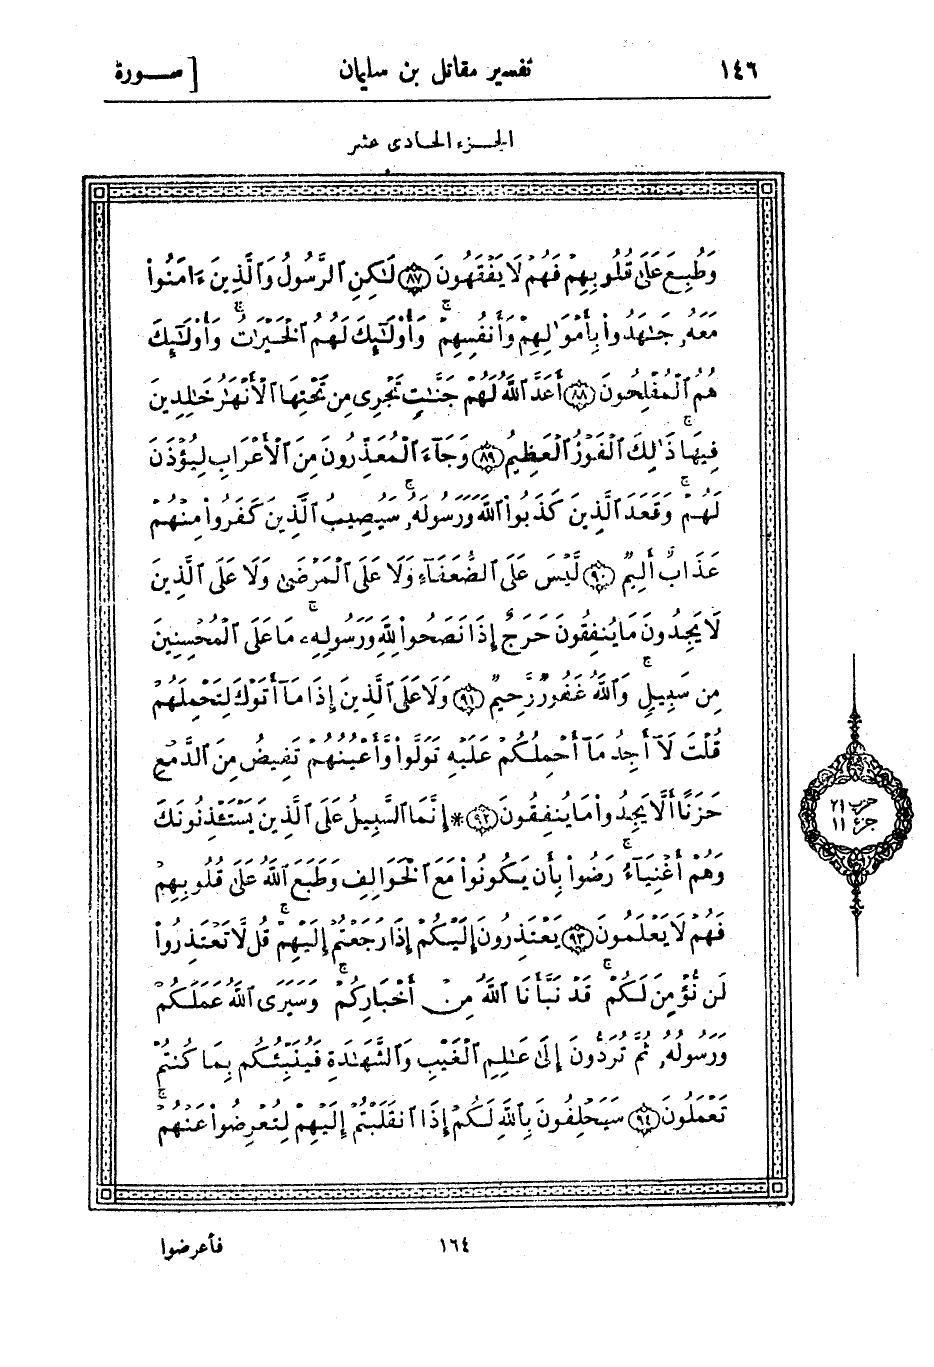 ١٤٦ تفسير مقاتل بن سليمان [ سـورة
الجـزء الحـادى عشر
وَطُبِعَ عَلَىٰ قُلُوبِهِمْ فَهُمْ لَا يَفْقَهُونَ ﴿٨٧﴾ لَٰكِنِ ٱلرَّسُولُ وَٱلَّذِينَ ءَامَنُوا۟
مَعَهُۥ جَٰهَدُوا۟ بِأَمْوَٰلِهِمْ وَأَنفُسِهِمْ ۚ وَأُو۟لَٰٓئِكَ لَهُمُ ٱلْخَيْرَٰتُ ۖ وَأُو۟لَٰٓئِكَ
هُمُ ٱلْمُفْلِحُونَ ﴿٨٨﴾ أَعَدَّ ٱللَّهُ لَهُمْ جَنَّٰتٍ تَجْرِى مِن تَحْتِهَا ٱلْأَنْهَٰرُ خَٰلِدِينَ
فِيهَا ۚ ذَٰلِكَ ٱلْفَوْزُ ٱلْعَظِيمُ ﴿٨٩﴾ وَجَآءَ ٱلْمُعَذِّرُونَ مِنَ ٱلْأَعْرَابِ لِيُؤْذَنَ
لَهُمْ ۚ وَقَعَدَ ٱلَّذِينَ كَذَبُوا۟ ٱللَّهَ وَرَسُولَهُۥ ۚ سَيُصِيبُ ٱلَّذِينَ كَفَرُوا۟ مِنْهُمْ
عَذَابٌ أَلِيمٌ ﴿٩٠﴾ لَّيْسَ عَلَى ٱلضُّعَفَآءِ وَلَا عَلَى ٱلْمَرْضَىٰ وَلَا عَلَى ٱلَّذِينَ
لَا يَجِدُونَ مَا يُنفِقُونَ حَرَجٌ إِذَا نَصَحُوا۟ لِلَّهِ وَرَسُولِهِۦ ۚ مَا عَلَى ٱلْمُحْسِنِينَ
مِن سَبِيلٍ ۚ وَٱللَّهُ غَفُورٌ رَّحِيمٌ ﴿٩١﴾ وَلَا عَلَى ٱلَّذِينَ إِذَا مَآ أَتَوْكَ لِتَحْمِلَهُمْ
قُلْتَ لَآ أَجِدُ مَآ أَحْمِلُكُمْ عَلَيْهِ تَوَلَّوا۟ وَّأَعْيُنُهُمْ تَفِيضُ مِنَ ٱلدَّمْعِ
حَزَنًا أَلَّا يَجِدُوا۟ مَا يُنفِقُونَ ﴿٩٢﴾ * إِنَّمَا ٱلسَّبِيلُ عَلَى ٱلَّذِينَ يَسْتَـْٔذِنُونَكَ
وَهُمْ أَغْنِيَآءُ ۚ رَضُوا۟ بِأَن يَكُونُوا۟ مَعَ ٱلْخَوَالِفِ وَطَبَعَ ٱللَّهُ عَلَىٰ قُلُوبِهِمْ
فَهُمْ لَا يَعْلَمُونَ ﴿٩٣﴾ يَعْتَذِرُونَ إِلَيْكُمْ إِذَا رَجَعْتُمْ إِلَيْهِمْ ۚ قُل لَّا تَعْتَذِرُوا۟
لَن نُّؤْمِنَ لَكُمْ ۚ قَدْ نَبَّأَنَا ٱللَّهُ مِنْ أَخْبَارِكُمْ ۚ وَسَيَرَى ٱللَّهُ عَمَلَكُمْ
وَرَسُولُهُۥ ثُمَّ تُرَدُّونَ إِلَىٰ عَٰلِمِ ٱلْغَيْبِ وَٱلشَّهَٰدَةِ فَيُنَبِّئُكُم بِمَا كُنتُمْ
تَعْمَلُونَ ﴿٩٤﴾ سَيَحْلِفُونَ بِٱللَّهِ لَكُمْ إِذَا ٱنقَلَبْتُمْ إِلَيْهِمْ لِتُعْرِضُوا۟ عَنْهُمْ ۖ
حزب ٢١
جزء ١١
١٦٤ فأعرضوا